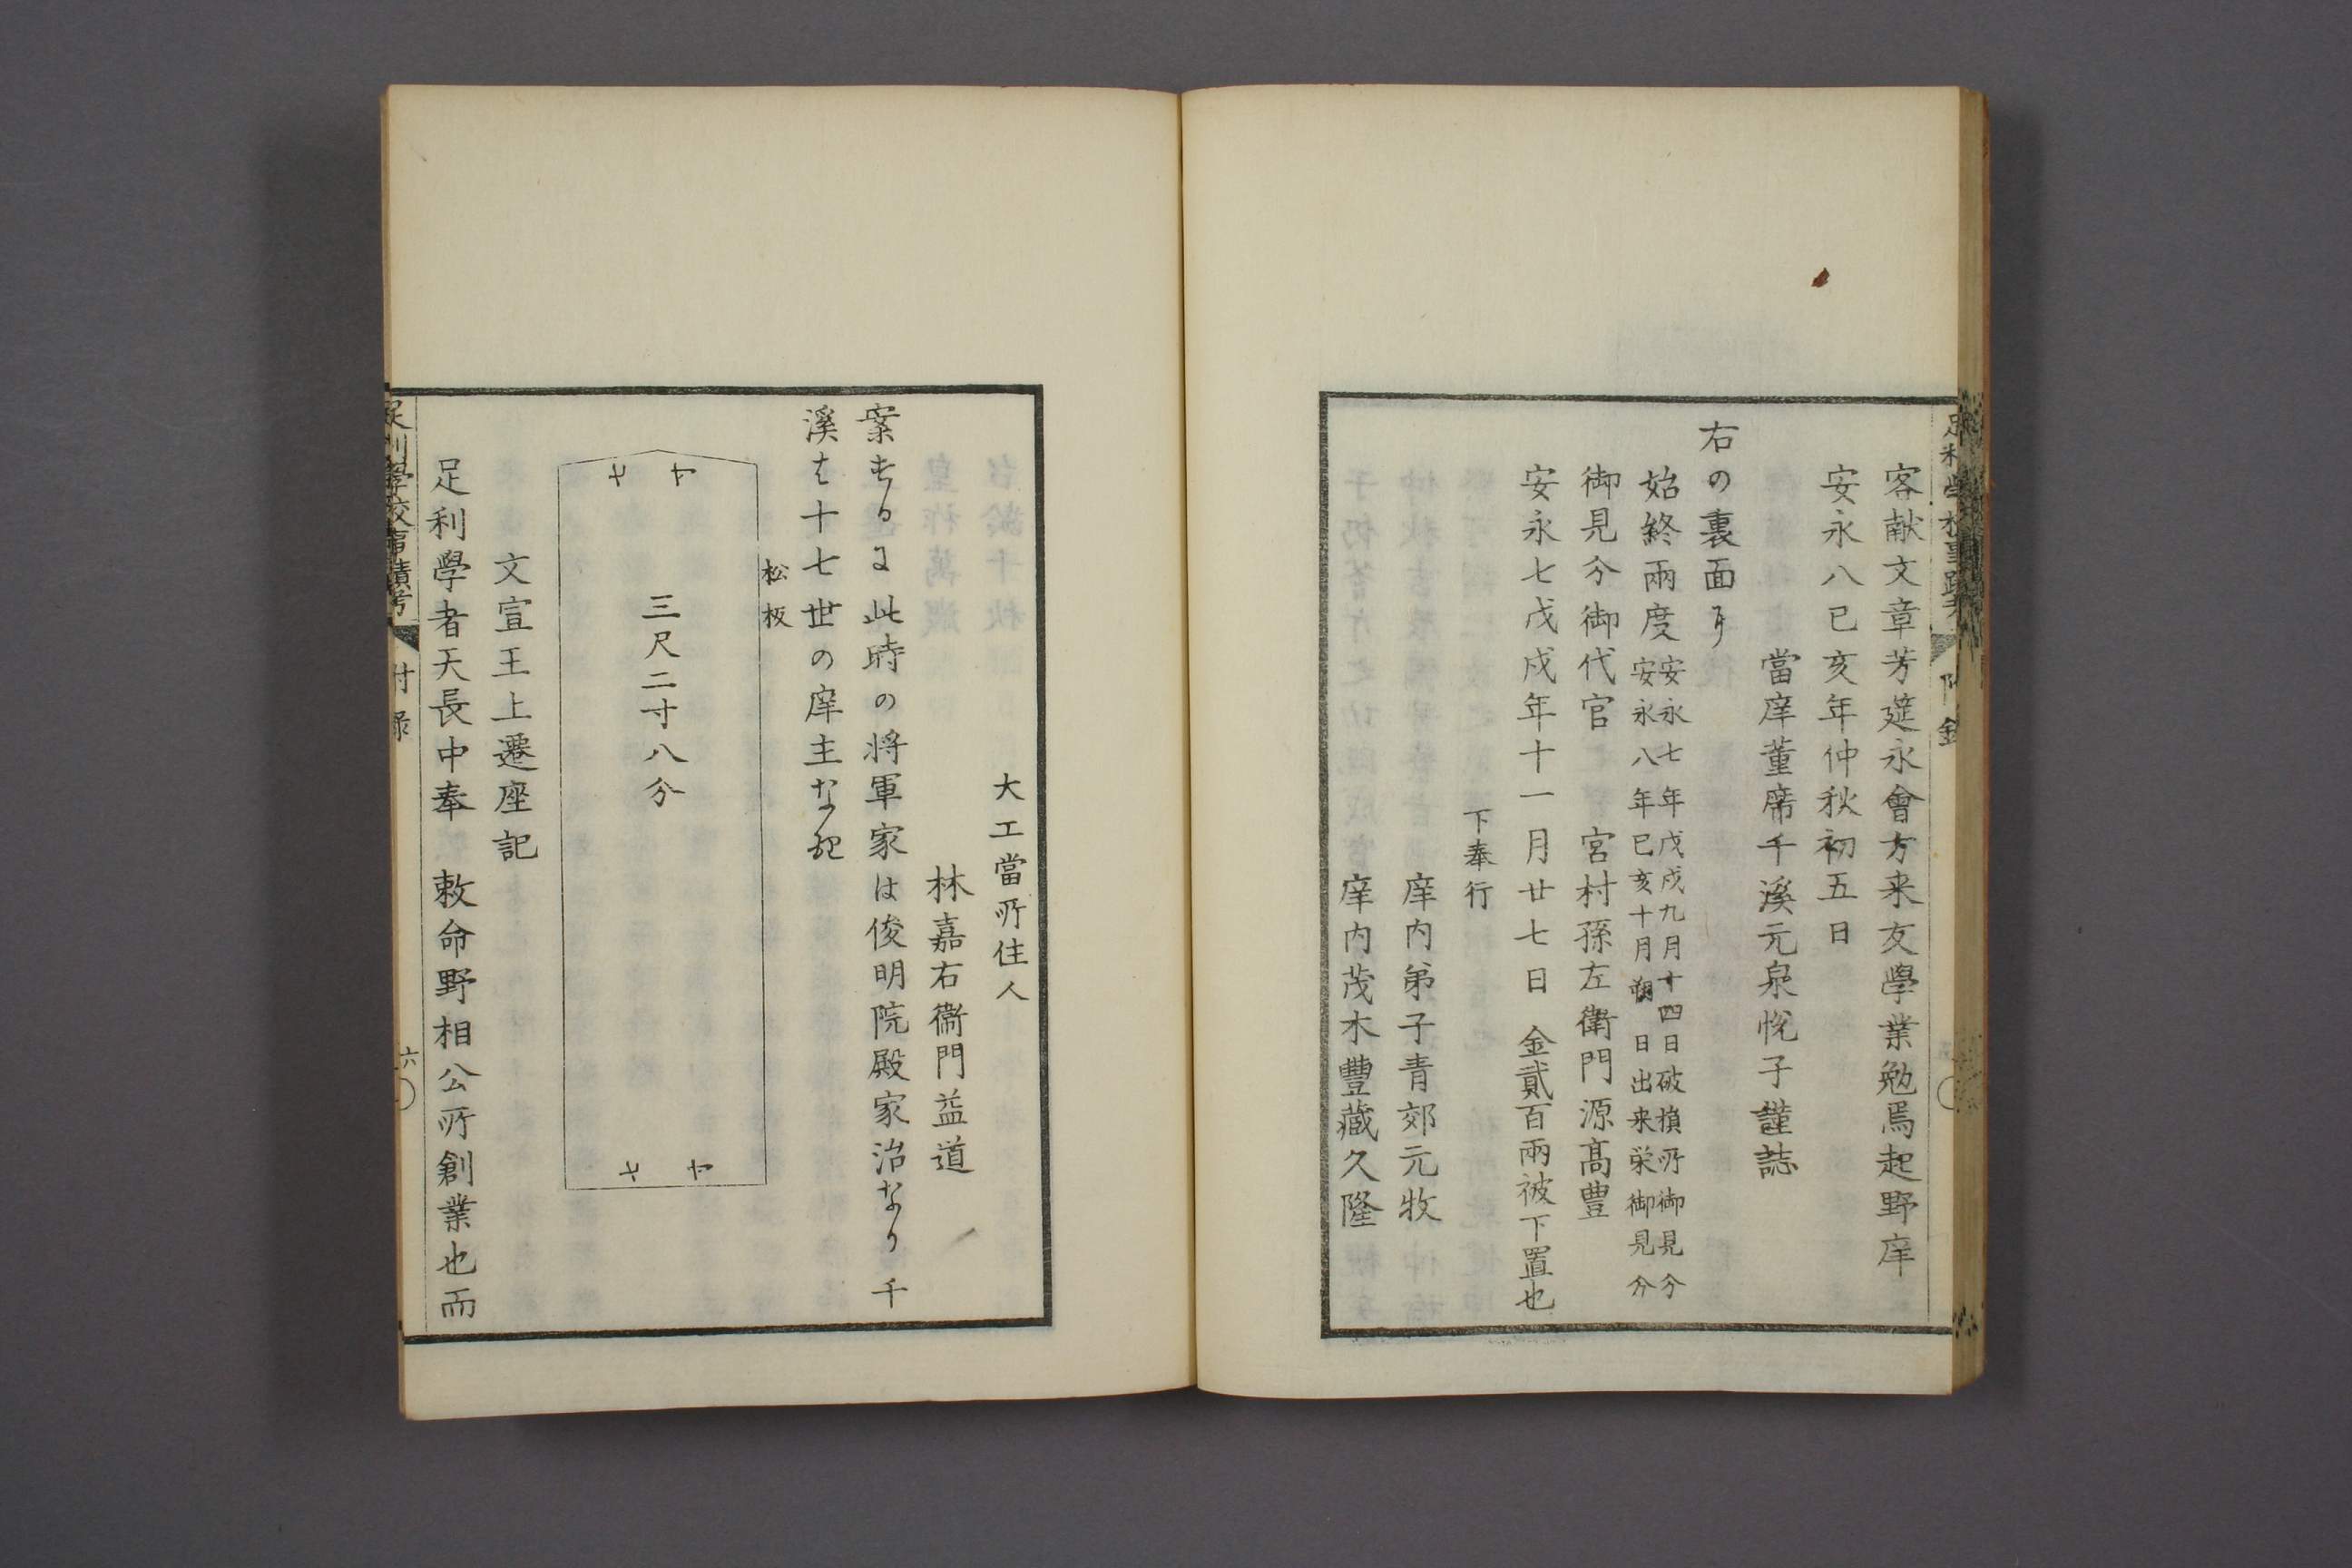 客献文章芳筵永會方来友學業勉焉起野庠
安永八己亥年仲秋初五日
當庠董席千溪元泉悦子謹誌
右の裏面ヿ
始終兩度安永七年戊戌九月十四日破損所御見分
安永八年己亥十月朔日出来栄御見分
御見分御代官 宮村孫左衛門源髙豊
安永七戊戌年十一月廿七日 金貳百兩被下置也
下奉行
庠内弟子青郊元牧
庠内茂木豊藏久隆
大工當所住人
林嘉右衛門益道
案するに此時の将軍家は俊明院殿家治なり千
溪は十七世の庠主なり
松板
三尺二寸八分
文宣王上遷座記
足利學者天長中奉 敕命野相公所創業也而
足利學校事蹟考 附録 六